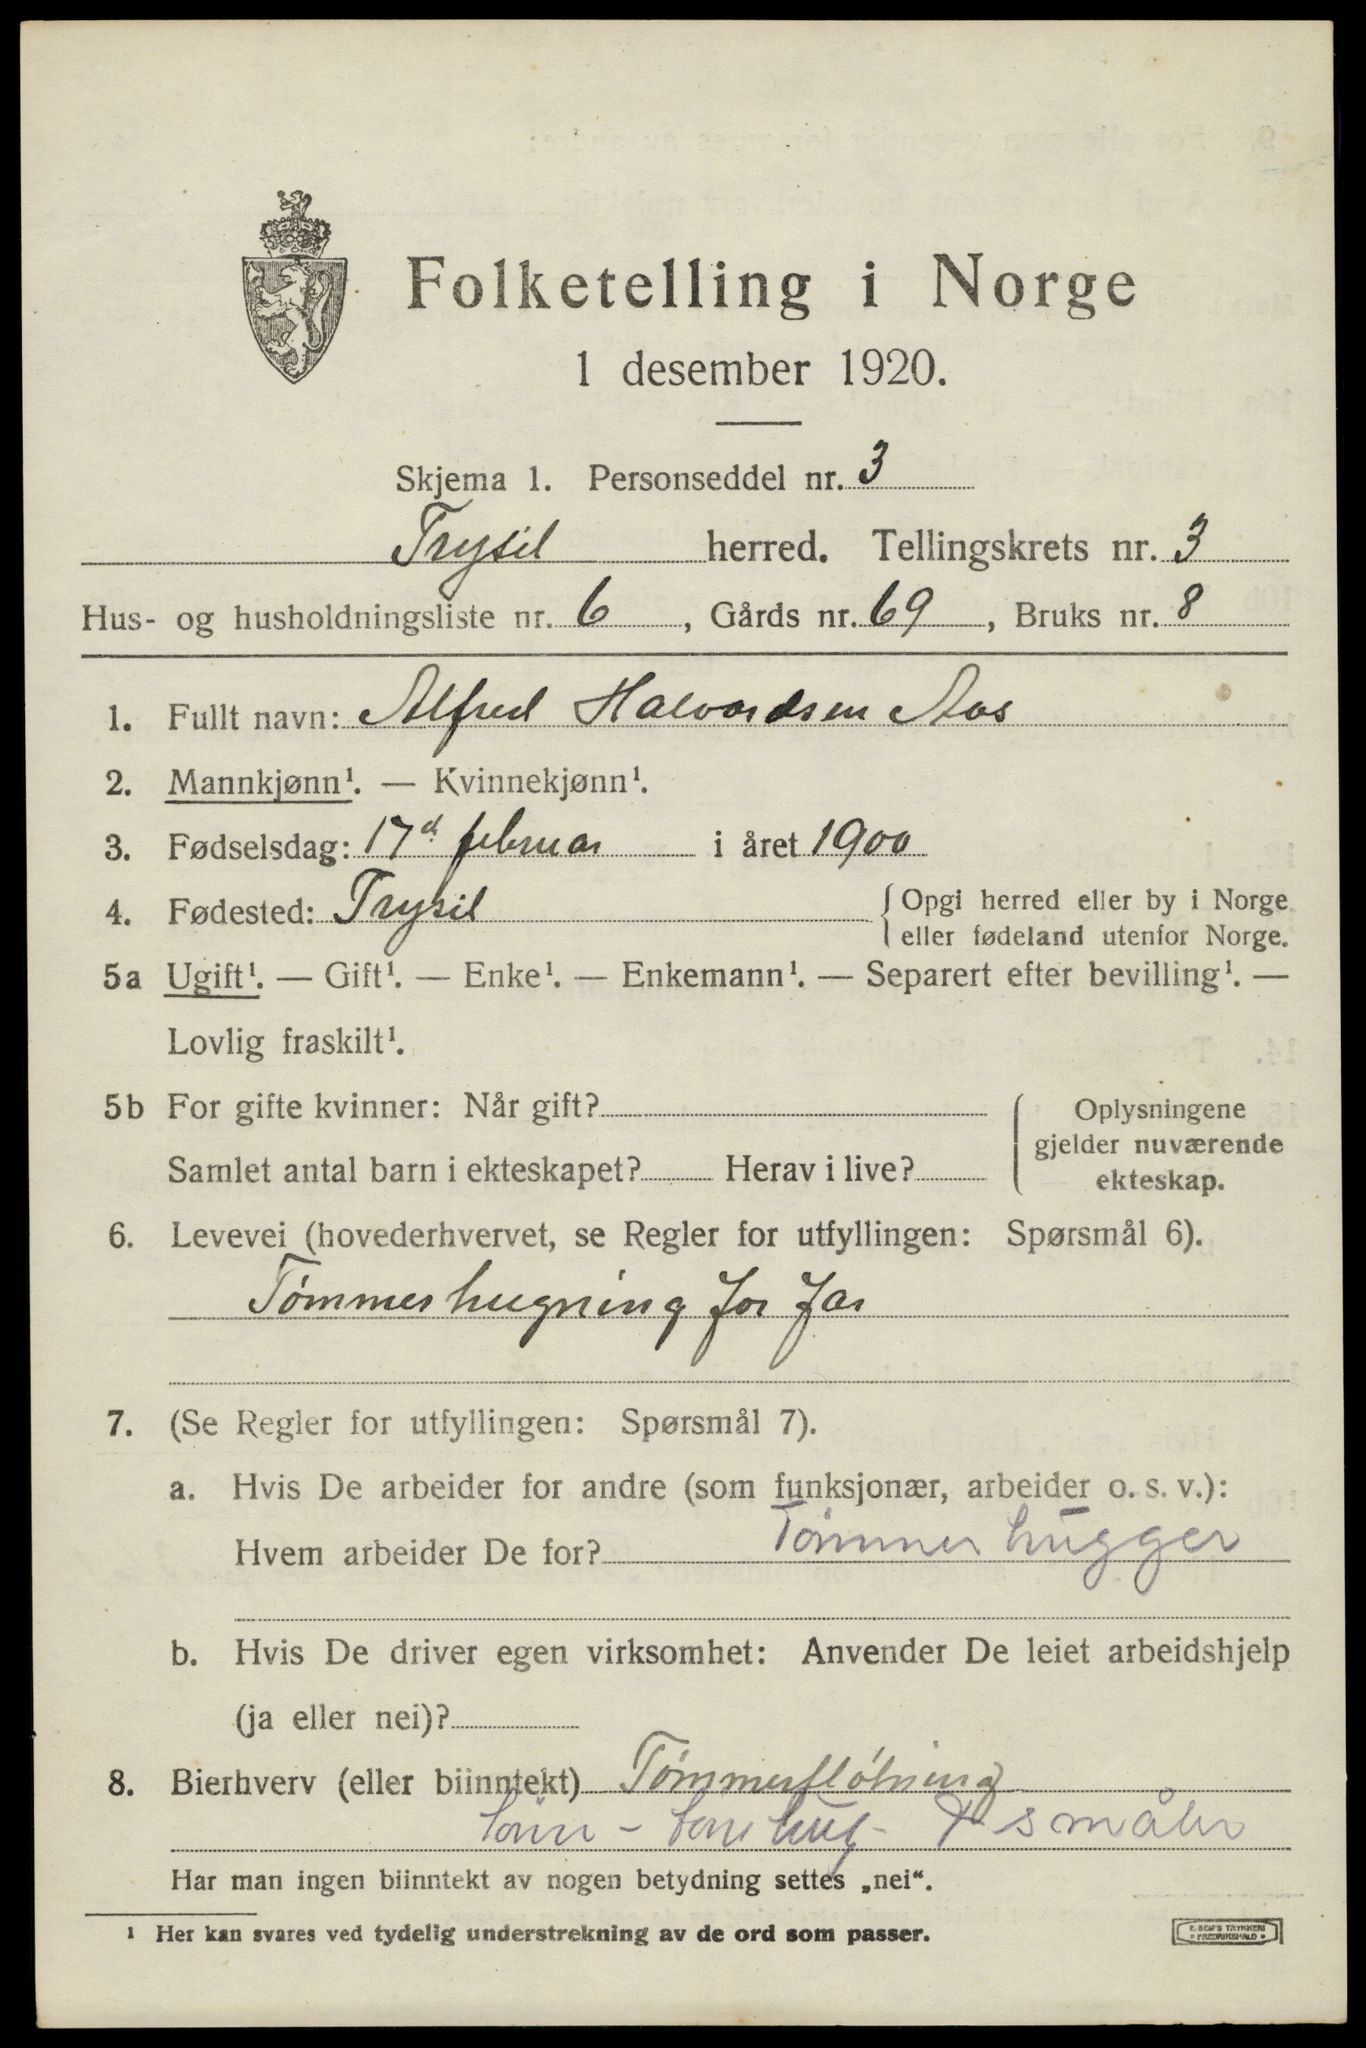 Folketelling i Norge
1 desember 1920.
Skjema 1. Personseddel nr. 3
Trysil herred. Tellingskrets nr. 3
Hus- og husholdningsliste nr. 6, Gårds nr. 69, Bruks nr. 8
1. Fullt navn: Alfred Halvordsen Aas
2. Mannkjønn¹. — Kvinnekjønn¹.
3. Fødselsdag: 17d februar i året 1900
4. Fødested: Trysil {Opgi herred eller by i Norge
eller fødeland utenfor Norge.
5a Ugift¹. — Gift¹. — Enke¹. — Enkemann¹. — Separert efter bevilling¹. —
Lovlig fraskilt¹.
5b For gifte kvinner: Når gift? { Oplysningene
gjelder nuværende
Samlet antal barn i ekteskapet? Herav i live? ekteskap.
6. Levevei (hovederhvervet, se Regler for utfyllingen: Spørsmål 6).
Tømmerhugning for far
7. (Se Regler for utfyllingen: Spørsmål 7).
a. Hvis De arbeider for andre (som funksjonær, arbeider o. s. v.):
Hvem arbeider De for? Tømmerhugger
b. Hvis De driver egen virksomhet: Anvender De leiet arbeidshjelp
(ja eller nei)?
8. Bierhverv (eller biinntekt) Tømmerfløtning
Har man ingen biinntekt av nogen betydning settes „nei“.
¹ Her kan svares ved tydelig understrekning av de ord som passer.
E. SEM'S TRYKKERI
FREDRIKSHALD